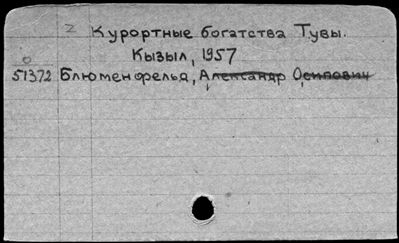 2 Курортные богатства Тувы.
Кызыл, 1957
51372 Блюменфельд, Александр Осипович